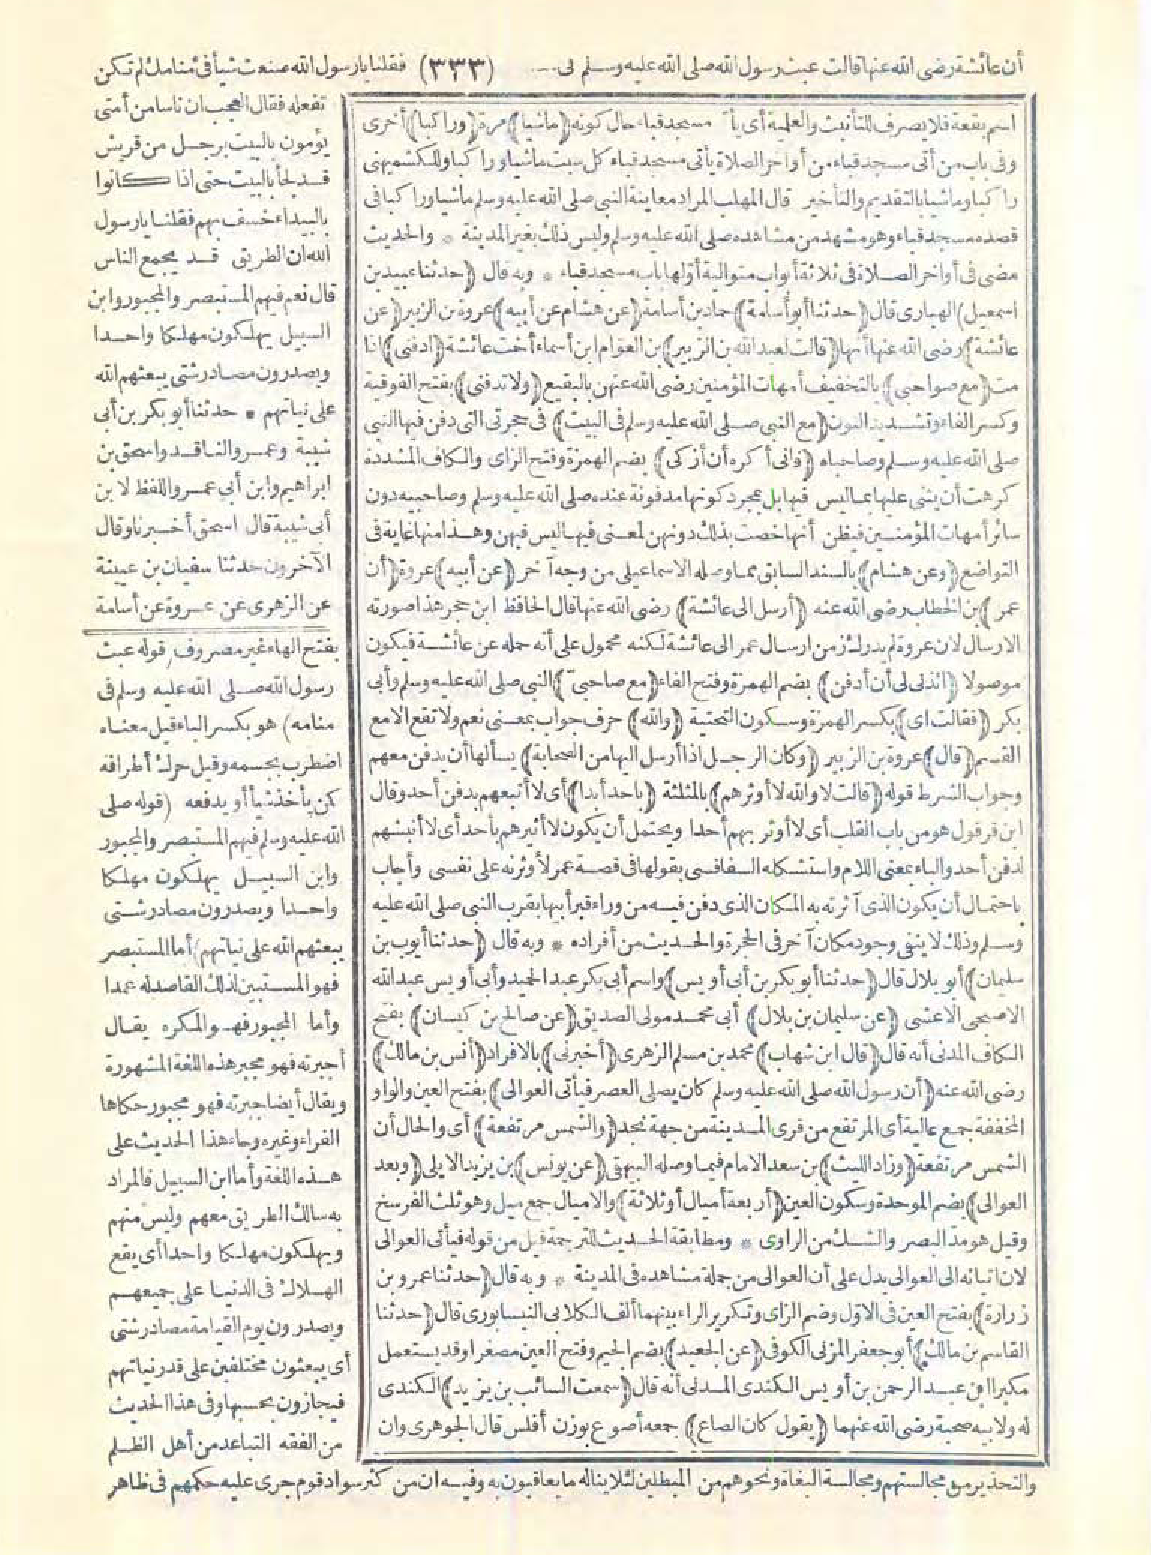 أن عائشة رضى الله عنها قالت عبث رسول الله صلى الله عليه وسلم فى (٣٣٣) فقلنا يا رسول الله صنعت شيأ فى منامك لم تكن
تفعله فقال العجب ان ناسا من أمتى
يؤمون بالبيت برجل من قريش
قد لجأ بالبيت حتى اذا كانوا
بالبيداء خسف بهم فقلنا يا رسول
الله ان الطريق قد يجمع الناس
قال نعم فيهم المستبصر والمجبور وابن
السبيل يهلكون مهلكا واحدا
ويصدرون مصادر شتى يبعثهم الله
على نياتهم * حدثنا أبو بكر بن أبى
شيبة وعمرو الناقد واسحق بن
ابراهيم وابن أبي عمر واللفظ لابن
أبى شيبة قال اسحق أخبرنا وقال
الآخرون حدثنا سفيان بن عيينة
عن الزهرى عن عروة عن أسامة
اسم بقعة فلا يصرف للتأنيث والعلمية أى يأ مسجد قباء حال كونه (ماشيا) مرة (وراكبا) أخرى
وفى باب من أتى مسجد قباء من أواخر الصلاة يأتى مسجد قباء كل سبت ماشيا وراكبا وللكشميهنى
راكبا وماشيا بالتقديم والتأخير قال المهلب المراد معاينة النبي صلى الله عليه وسلم ماشيا وراكبا فى
قصده مسجد قباء وهو مشهد من مشاهده صلى الله عليه وسلم وليس ذلك بغير المدينة * والحديث
مضى فى أواخر الصلاة فى ثلاثة أبواب متوالية أولها باب مسجد قباء * وبه قال (حدثنا عبيد بن
اسمعيل) الهبارى قال (حدثنا أبو أسامة) حماد بن أسامة (عن هشام عن أبيه) عروة بن الزبير (عن
عائشة) رضى الله عنها أنها (قالت لعبد الله بن الزبير) بن العوام ابن أسماء أخت عائشة (ادفنى) اذا
مت (مع صواحبى) بالتخفيف أمهات المؤمنين رضى الله عنهن بالبقيع (ولا تدفنى) بفتح الفوقية
وكسر الفاء وتشديد النون (مع النبي صلى الله عليه وسلم فى البيت) فى حجرتى التى دفن فيها النبي
صلى الله عليه وسلم وصاحباه (فانى أكره أن أزكى) بضم الهمزة وفتح الزاى والكاف المشددة
كرهت أن يثنى عليها بما ليس فيها بل بمجرد كونها مدفونة عنده صلى الله عليه وسلم وصاحبيه دون
سائر أمهات المؤمنين فيظن أنها خصت بذلك دونهن لمعنى فيها ليس فيهن وهذا منها غاية فى
التواضع (وعن هشام) بالسند السابق مما وصله الاسماعيلى من وجه آخر (عن أبيه) عروة (أن
عمر) بن الخطاب رضى الله عنه (أرسل الى عائشة) رضى الله عنها قال الحافظ ابن حجر هذا صورته
الارسال لان عروة لم يدرك زمن ارسال عمر الى عائشة لكنه محمول على أنه حمله عن عائشة فيكون
موصولا (ائذنى لى أن أدفن) بضم الهمزة وفتح الفاء (مع صاحبى) النبي صلى الله عليه وسلم وأبى
بكر (فقالت اى) بكسر الهمزة وسكون التحتية (والله) حرف جواب بمعنى نعم ولا تقع الا مع
القسم (قال) عروة بن الزبير (وكان الرجل اذا أرسل اليها من الصحابة) يسألها أن يدفن معهم
وجواب الشرط قوله (قالت لا والله لا أوثرهم) بالمثلثة (بأحد أبدا) أى لا أتبعهم بدفن أحد وقال
ابن قرقول هو من باب القلب أى لا أوثر بهم أحدا ويحتمل أن يكون لا أثيرهم بأحد أى لا أنبشهم
لدفن أحد والباء بمعنى اللام واستشكله السفاقسى بقولها فى قصة عمر لأوثرنه على نفسى وأجاب
باحتمال أن يكون الذى آثرته به المكان الذى دفن فيه من وراء قبر أبيها بقرب النبي صلى الله عليه
وسلم وذلك لا ينفى وجود مكان آخر فى الحجرة والحديث من أفراده * وبه قال (حدثنا أيوب بن
سليمان) أبو بلال قال (حدثنا أبو بكر بن أبى أويس) واسم أبى بكر عبد الحميد وأبى أويس عبد الله
الاصبحى الاعشى (عن سليمان بن بلال) أبى محمد مولى الصديق (عن صالح بن كيسان) بفتح
الكاف المدنى أنه قال (قال ابن شهاب) محمد بن مسلم الزهرى (أخبرنى) بالافراد (أنس بن مالك)
رضى الله عنه (أن رسول الله صلى الله عليه وسلم كان يصلى العصر فيأتى العوالى) بفتح العين والواو
المخففة جمع عالية أى المرتفع من قرى المدينة من جهة نجد (والشمس مرتفعة) أى والحال أن
الشمس مرتفعة (وزاد الليث) بن سعد الامام فيما وصله البيهقى (عن يونس) بن يزيد الايلى (وبعد
العوالى) بضم الموحدة وسكون العين (أربعة أميال أو ثلاثة) والاميال جمع ميل وهو ثلث الفرسخ
وقيل هو مد البصر والشك من الراوى * ومطابقة الحديث للترجمة قيل من قوله فيأتى العوالى
لان اتيانه الى العوالى يدل على أن العوالى من جملة مشاهده فى المدينة * وبه قال (حدثنا عمرو بن
زرارة) بفتح العين فى الاول وضم الزاى وتكرير الراء بينهما ألف الكلابى النيسابورى قال (حدثنا
القاسم بن مالك) أبو جعفر المزنى الكوفى (عن الجعيد) بضم الجيم وفتح العين مصغرا وقد يستعمل
مكبرا ابن عبد الرحمن بن أويس الكندى المدنى أنه قال (سمعت السائب بن يزيد) الكندى
له ولابيه صحبة رضى الله عنهما (يقول كان الصاع) جمعه أصوع بوزن أفلس قال الجوهرى وان
بفتح الهاء غير مصروف (قوله عبث
رسول الله صلى الله عليه وسلم فى
منامه) هو بكسر الباء قيل معناه
اضطرب بجسمه وقيل حرك أطرافه
كمن يأخذ شيأ أو يدفعه (قوله صلى
الله عليه وسلم فيهم المستبصر والمجبور
وابن السبيل يهلكون مهلكا
واحدا ويصدرون مصادر شتى
يبعثهم الله على نياتهم) أما المستبصر
فهو المستبين لذلك القاصد له عمدا
وأما المجبور فهو المكره يقال
أجبرته فهو مجبر هذه اللغة المشهورة
ويقال أيضا جبرته فهو مجبور حكاها
الفراء وغيره وجاء هذا الحديث على
هذه اللغة وأما ابن السبيل فالمراد
به سالك الطريق معهم وليس منهم
ويهلكون مهلكا واحدا أى يقع
الهلاك فى الدنيا على جميعهم
ويصدرون يوم القيامة مصادر شتى
أى يبعثون مختلفين على قدر نياتهم
فيجازون بحسبها وفى هذا الحديث
من الفقه التباعد من أهل الظلم
والتحذير من مجالستهم ومجالسة البغاة ونحوهم من المبطلين لئلا يناله ما يعاقبون به وفيه ان من كثر سواد قوم جرى عليه حكمهم فى ظاهر